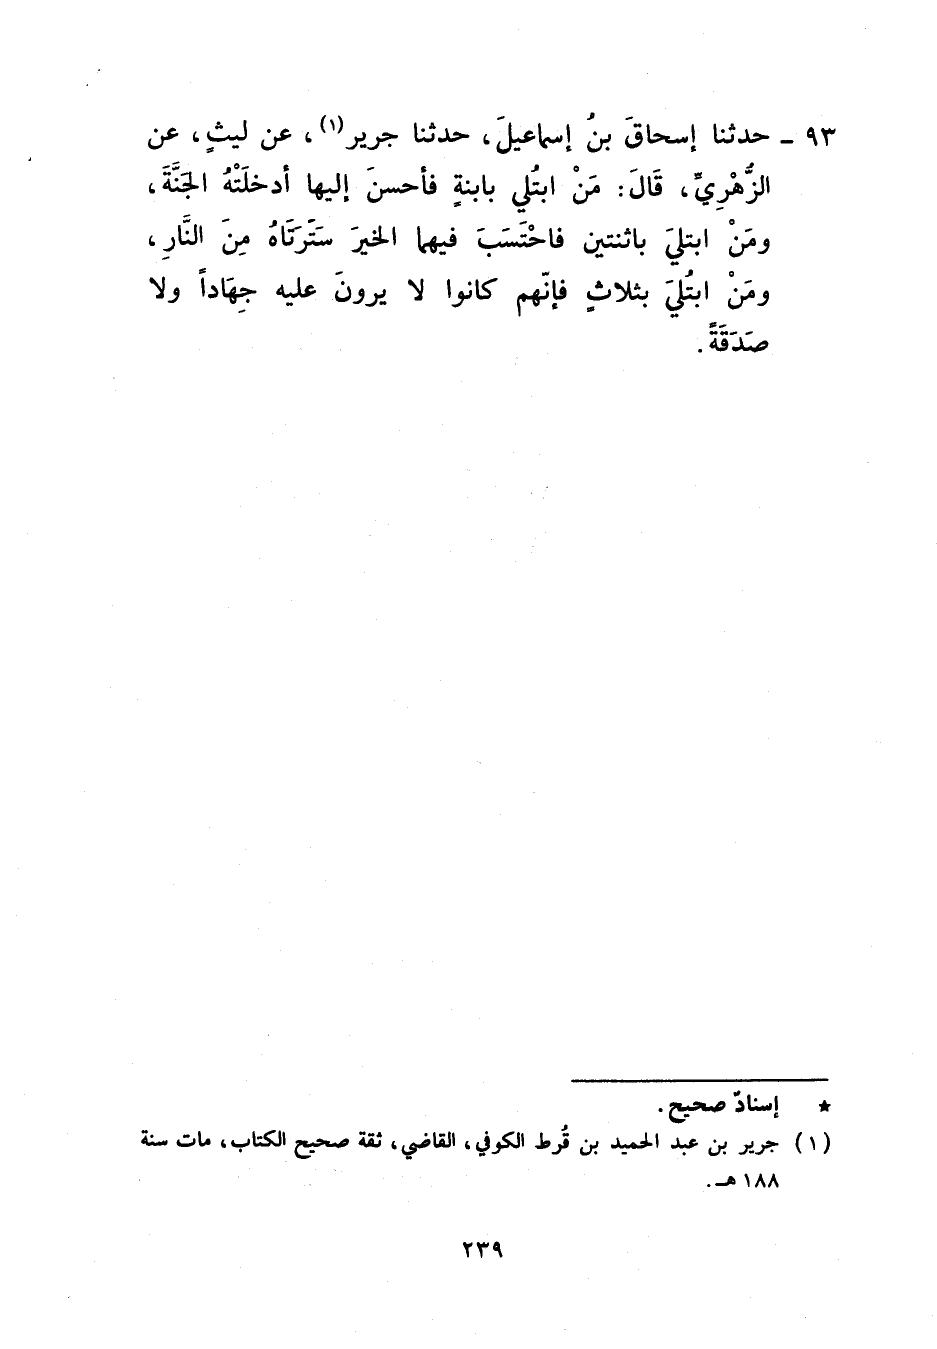 ٩٣ ـ حدثنا إسحاقَ بنُ إسماعيلَ، حدثنا جرير(١)، عن ليثٍ، عن
الزُّهْرِيِّ، قَالَ: مَنْ ابتُلي بابنةٍ فأحسنَ إليها أدخلَتْهُ الجَنَّةَ،
ومَنْ ابتليَ باثنتين فاحْتَسَبَ فيهما الخيرَ سَتَرَتَاهُ مِنَ النَّارِ،
ومَنْ ابتُليَ بثلاثٍ فإنّهم كانوا لا يرونَ عليه جِهَاداً ولا
صَدَقَةً.
★ إسنادٌ صحيح.
(١) جرير بن عبد الحميد بن قُرط الكوفي، القاضي، ثقة صحيح الكتاب، مات سنة
١٨٨ هـ.
٢٣٩